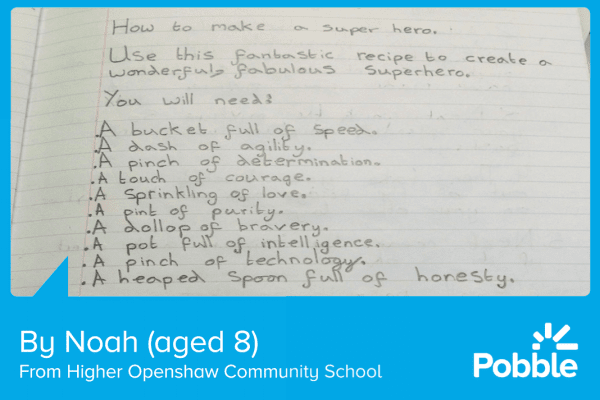 How to make a super hero.
Use this fantastic recipe to create a
wonderful, fabulous superhero.
You will need:
.A bucket full of speed.
.A dash of agility.
.A pinch of determination.
.A touch of courage.
.A sprinkling of love.
.A pint of purity.
.A dollop of bravery.
.A pot full of intelligence.
.A pinch of technology.
.A heaped spoon full of honesty.
By Noah (aged 8)
From Higher Openshaw Community School
Pobble